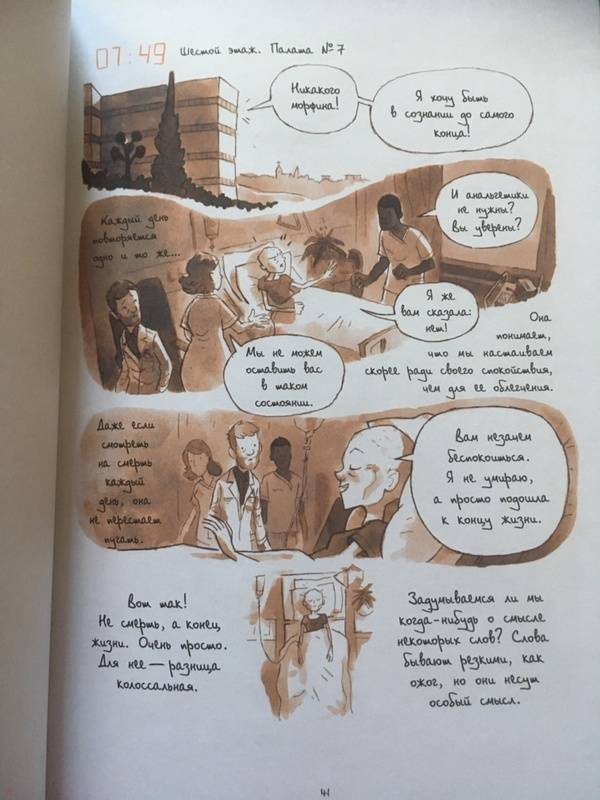 07:49 Шестой этаж. Палата №7
Никакого
морфина!
Я хочу быть
в сознании до самого
конца!
Каждый день
повторяется
одно и то же...
И анальгетики
не нужны?
Вы уверены?
Я же
вам сказала:
нет!
Мы не можем
оставить вас
в таком
состоянии.
Она
понимает,
что мы настаиваем
скорее ради своего спокойствия,
чем для ее облегчения.
Даже если
смотреть
на смерть
каждый
день, она
не перестает
пугать.
Вам незачем
беспокоиться.
Я не умираю,
а просто подошла
к концу жизни.
Вот так!
Не смерть, а конец
жизни. Очень просто.
Для нее — разница
колоссальная.
Задумываемся ли мы
когда-нибудь о смысле
некоторых слов? Слова
бывают резкими, как
ожог, но они несут
особый смысл.
41